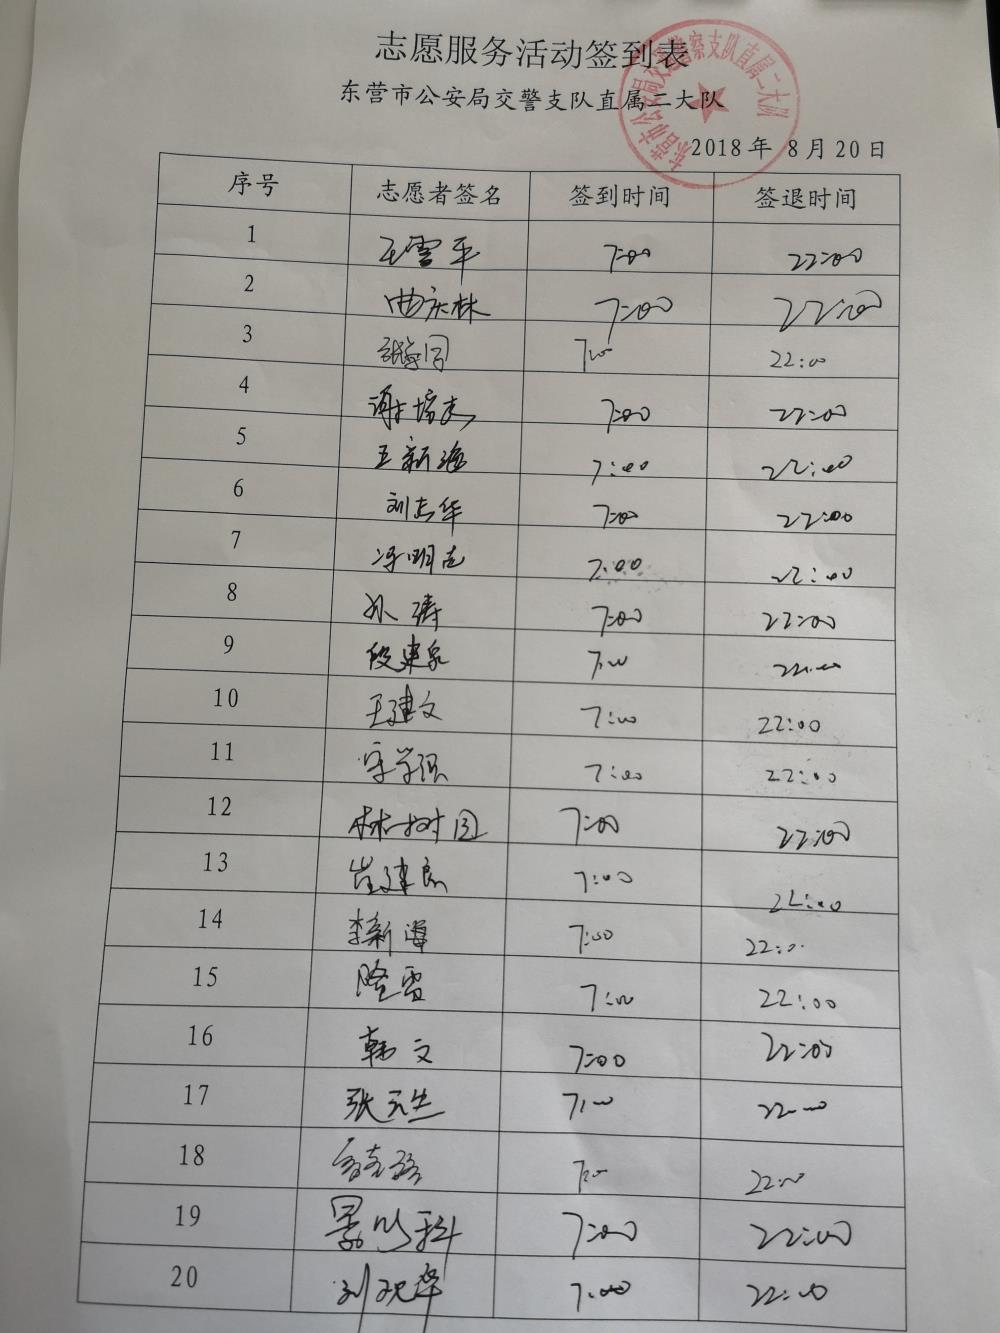 志愿服务活动签到表
东营市公安局交警支队直属二大队
东营市公安局交通警察支队直属二大队
2018年 8月20日
序号 志愿者签名 签到时间 签退时间
1 王雪平 7:00 22:00
2 曲庆林 7:00 22:00
3 7:00 22:00
4 7:00 22:00
5 王新海 7:00 22:00
6 刘志华 7:00 22:00
7 冯明志 7:00 22:00
8 孙涛 7:00 22:00
9 段建泉 7:00 22:00
10 王建文 7:00 22:00
11 7:00 22:00
12 林树国 7:00 22:00
13 崔建良 7:00 22:00
14 李新海 7:00 22:00
15 隆雷 7:00 22:00
16 韩文 7:00 22:00
17 张元生 7:00 22:00
18 7:00 22:00
19 7:00 22:00
20 刘观华 7:00 22:00